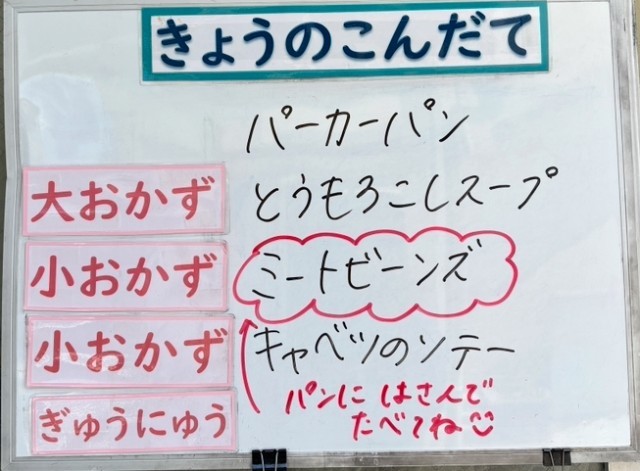 きょうのこんだて
パーカーパン
大おかず とうもろこしスープ
小おかず ミートビーンズ
小おかず キャベツのソテー
パンに はさんで
たべてね
ぎゅうにゅう